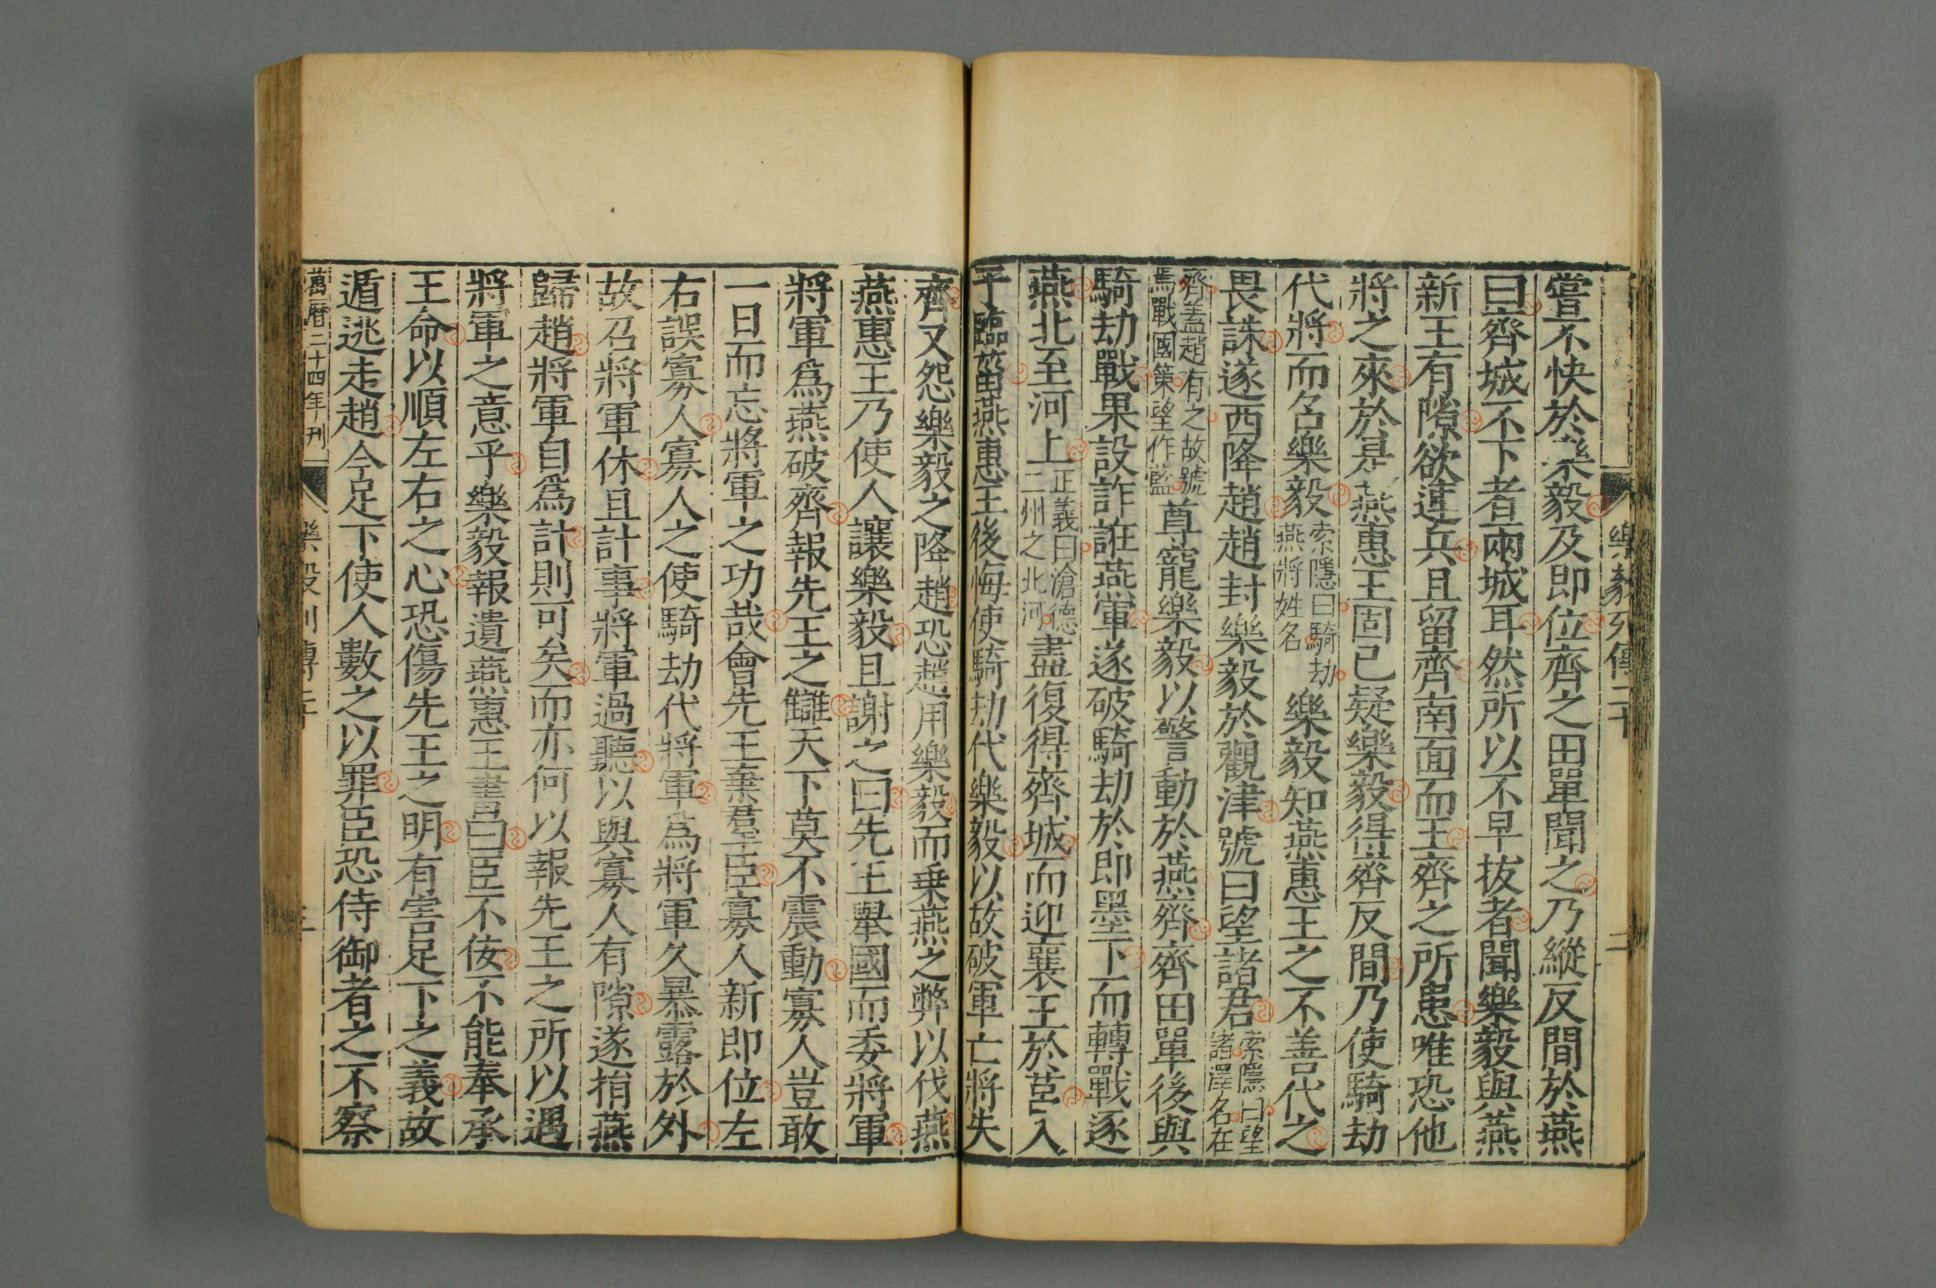 樂毅列傳二十
二
嘗不快於樂毅及即位齊之田單聞之乃縱反間於燕
曰齊城不下者兩城耳然所以不早拔者聞樂毅與燕
新王有隙欲連兵且留齊南面而王齊之所患唯恐他
將之來於是燕惠王固已疑樂毅得齊反間乃使騎劫
代將而召樂毅索隱曰騎劫燕將姓名樂毅知燕惠王之不善代之
畏誅遂西降趙趙封樂毅於觀津號曰望諸君索隱曰望諸澤名在
齊蓋趙有之故號焉戰國策望作藍尊寵樂毅以警動於燕齊齊田單後與
騎劫戰果設詐誑燕軍遂破騎劫於即墨下而轉戰逐
燕北至河上正義曰滄德三州之北河盡復得齊城而迎襄王於莒入
于臨菑燕惠王後悔使騎劫代樂毅以故破軍亡將失
齊又怨樂毅之降趙恐趙用樂毅而乗燕之弊以伐燕
燕惠王乃使人讓樂毅且謝之曰先王舉國而委將軍
將軍爲燕破齊報先王之讎天下莫不震動寡人豈敢
一日而忘將軍之功哉會先王棄羣臣寡人新即位左
右誤寡人寡人之使騎劫代將軍爲將軍久暴露於外
故召將軍休且計事將軍過聽以與寡人有隙遂捐燕
歸趙將軍自爲計則可矣而亦何以報先王之所以遇
將軍之意乎樂毅報遺燕惠王書曰臣不佞不能奉承
王命以順左右之心恐傷先王之明有害足下之義故
遁逃走趙今足下使人數之以罪臣恐侍御者之不察
萬曆二十四年刊
樂毅列傳二十
三